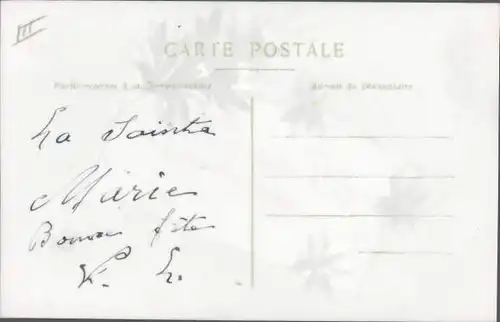 III
CARTE POSTALE
Partie réservée à la Correspondance
Adresse du Destinataire
La Sainte
Marie
Bonne fête
V. L.